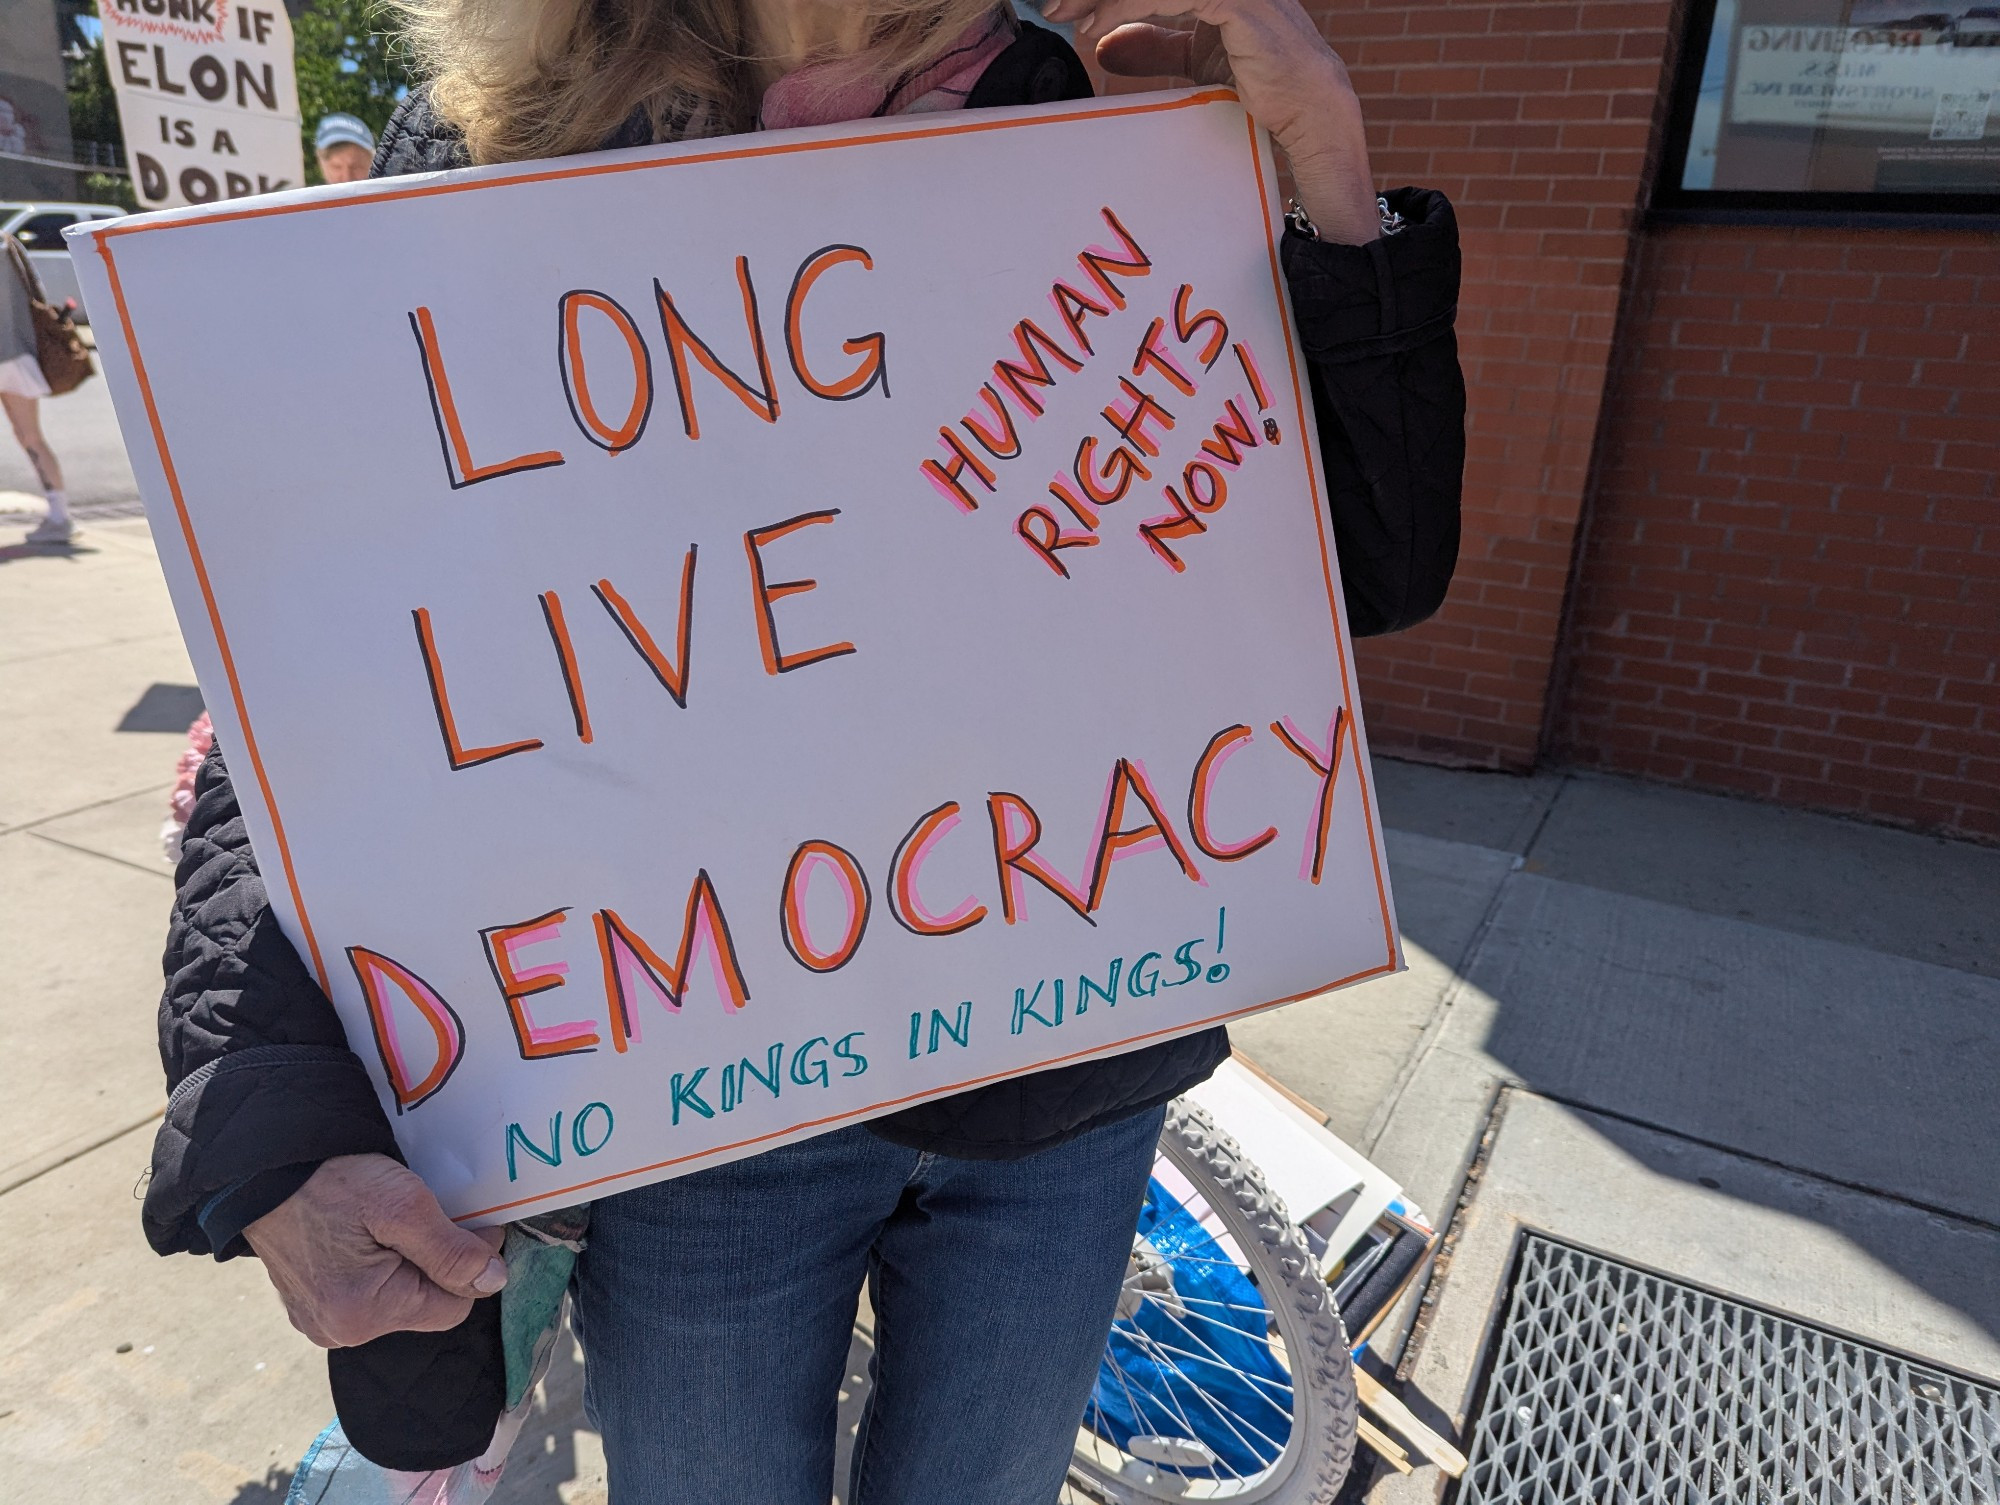 HONK IF
ELON
IS A
DORK
LONG
LIVE
DEMOCRACY
HUMAN
RIGHTS
NOW!
NO KINGS IN KINGS!
RECEIVING
M.I.S.S.
SPORTSWEAR INC.